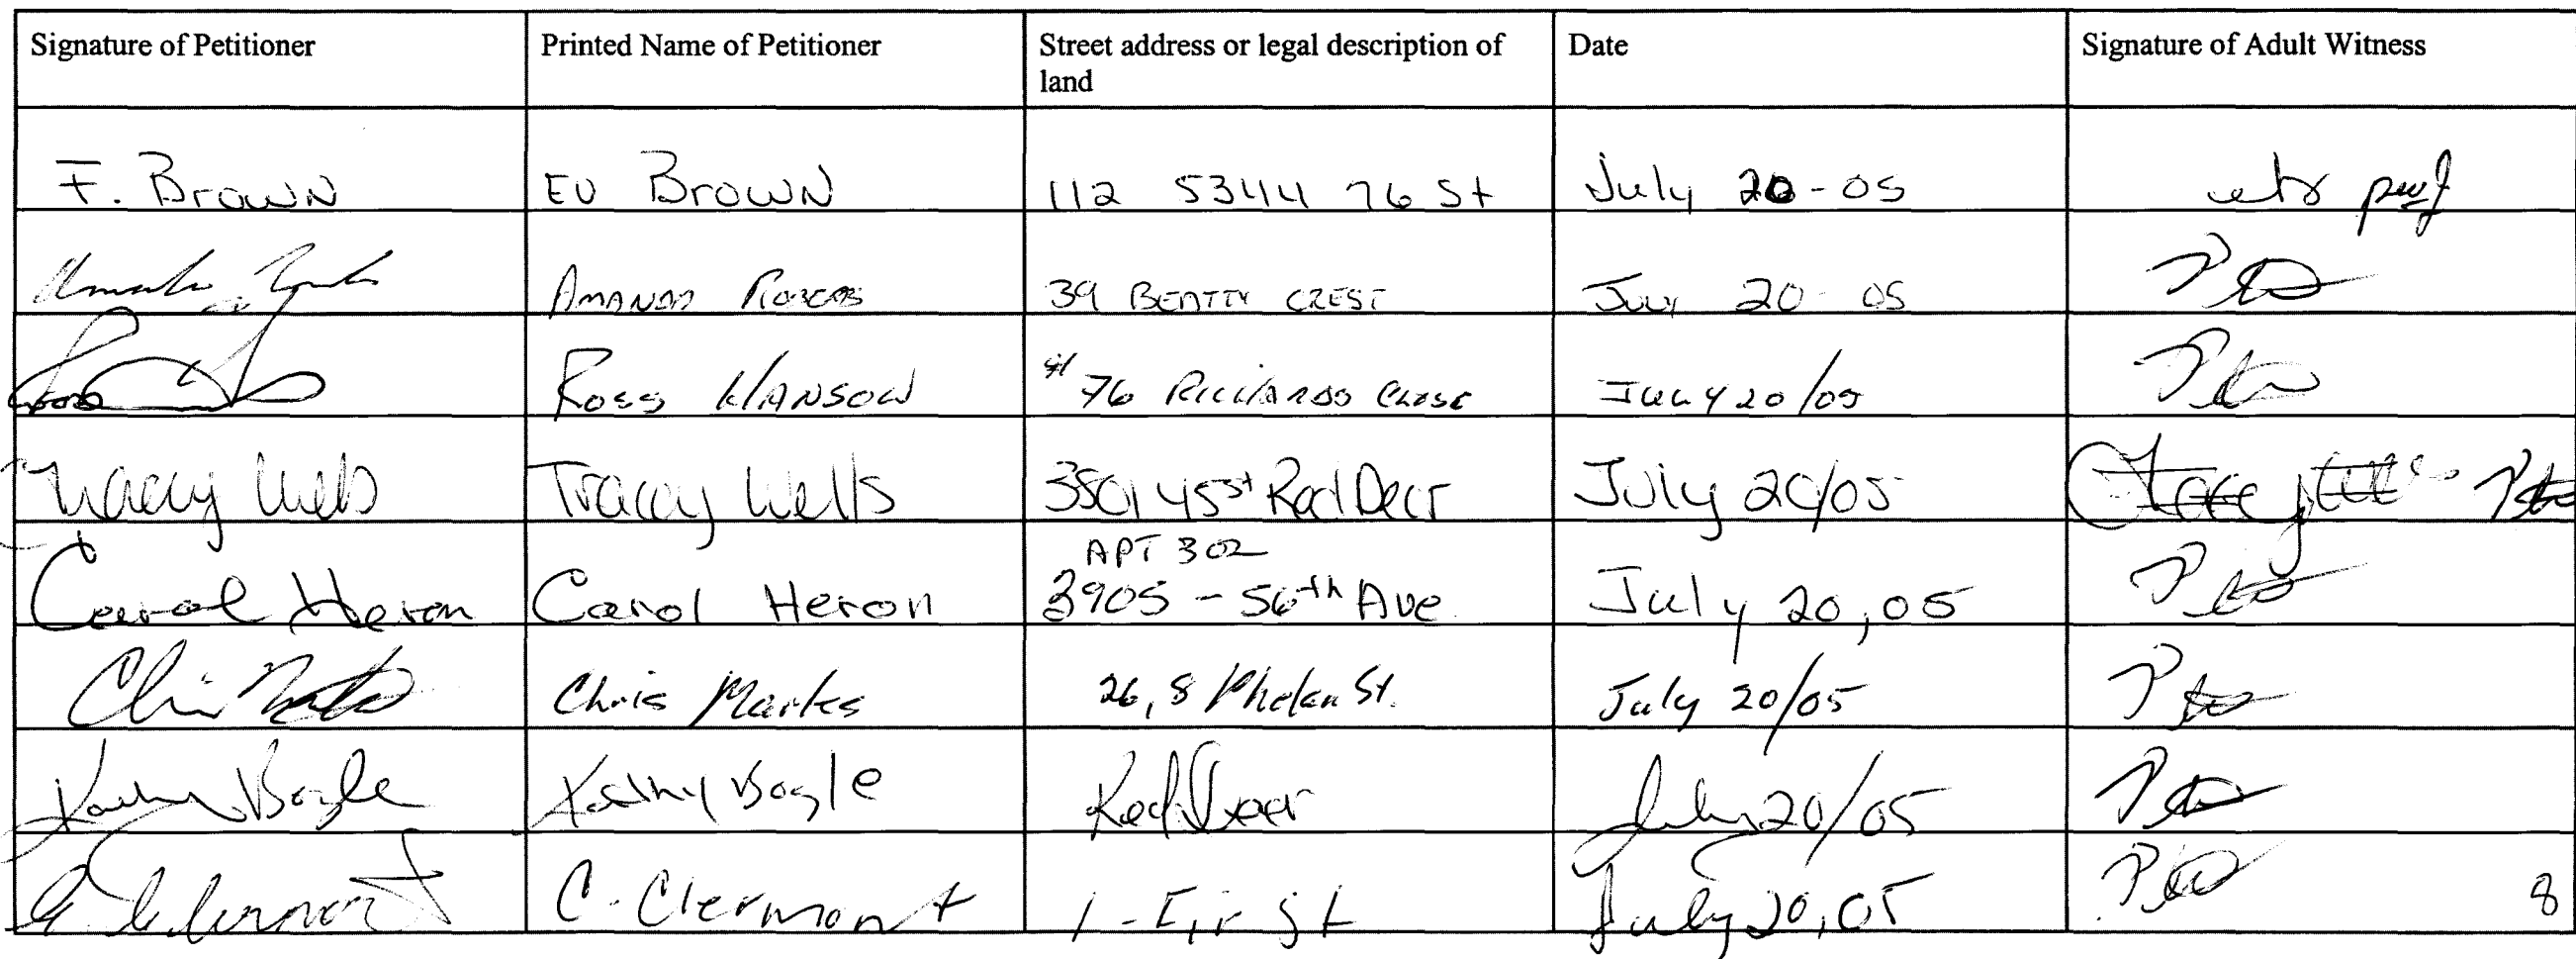 Signature of Petitioner Printed Name of Petitioner Street address or legal description of land Date Signature of Adult Witness
F. Brown EV Brown 112 5344 76 St July 20-05
AMANDA ROGERS 39 BEATTY CREST July 20-05
ROSS HANSON #76 RICHARDS CLOSE JULY 20/05
Tracey Wells Tracey Wells 3501 45st Red Deer July 20/05
APT 302
Carol Heron Carol Heron 3905 - 56th Ave July 20, 05
Chris Marks 26, 8 Phelan St. July 20/05
Kathy Bogle Kathy Bogle Red Deer July 20/05
C. Clermont C. Clermont July 20, 05 8